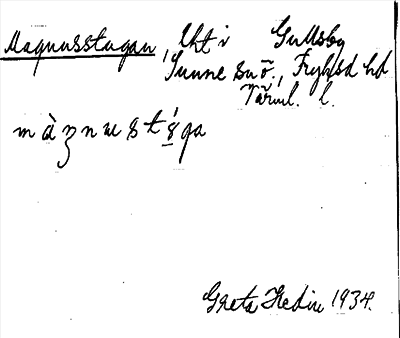 Magnusstugan, lht i Gullsby
Sunne sn Ö., Fryksd hd
Värml. l.
màʒnɯst ́s̲ga
Greta Hedin 1934.